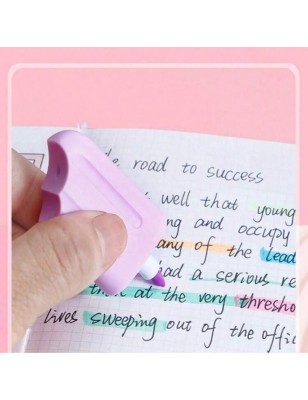 road to success
well that young
and occupy
any of the lead
had a serious re
at the very thresho
lives sweeping out of the offic